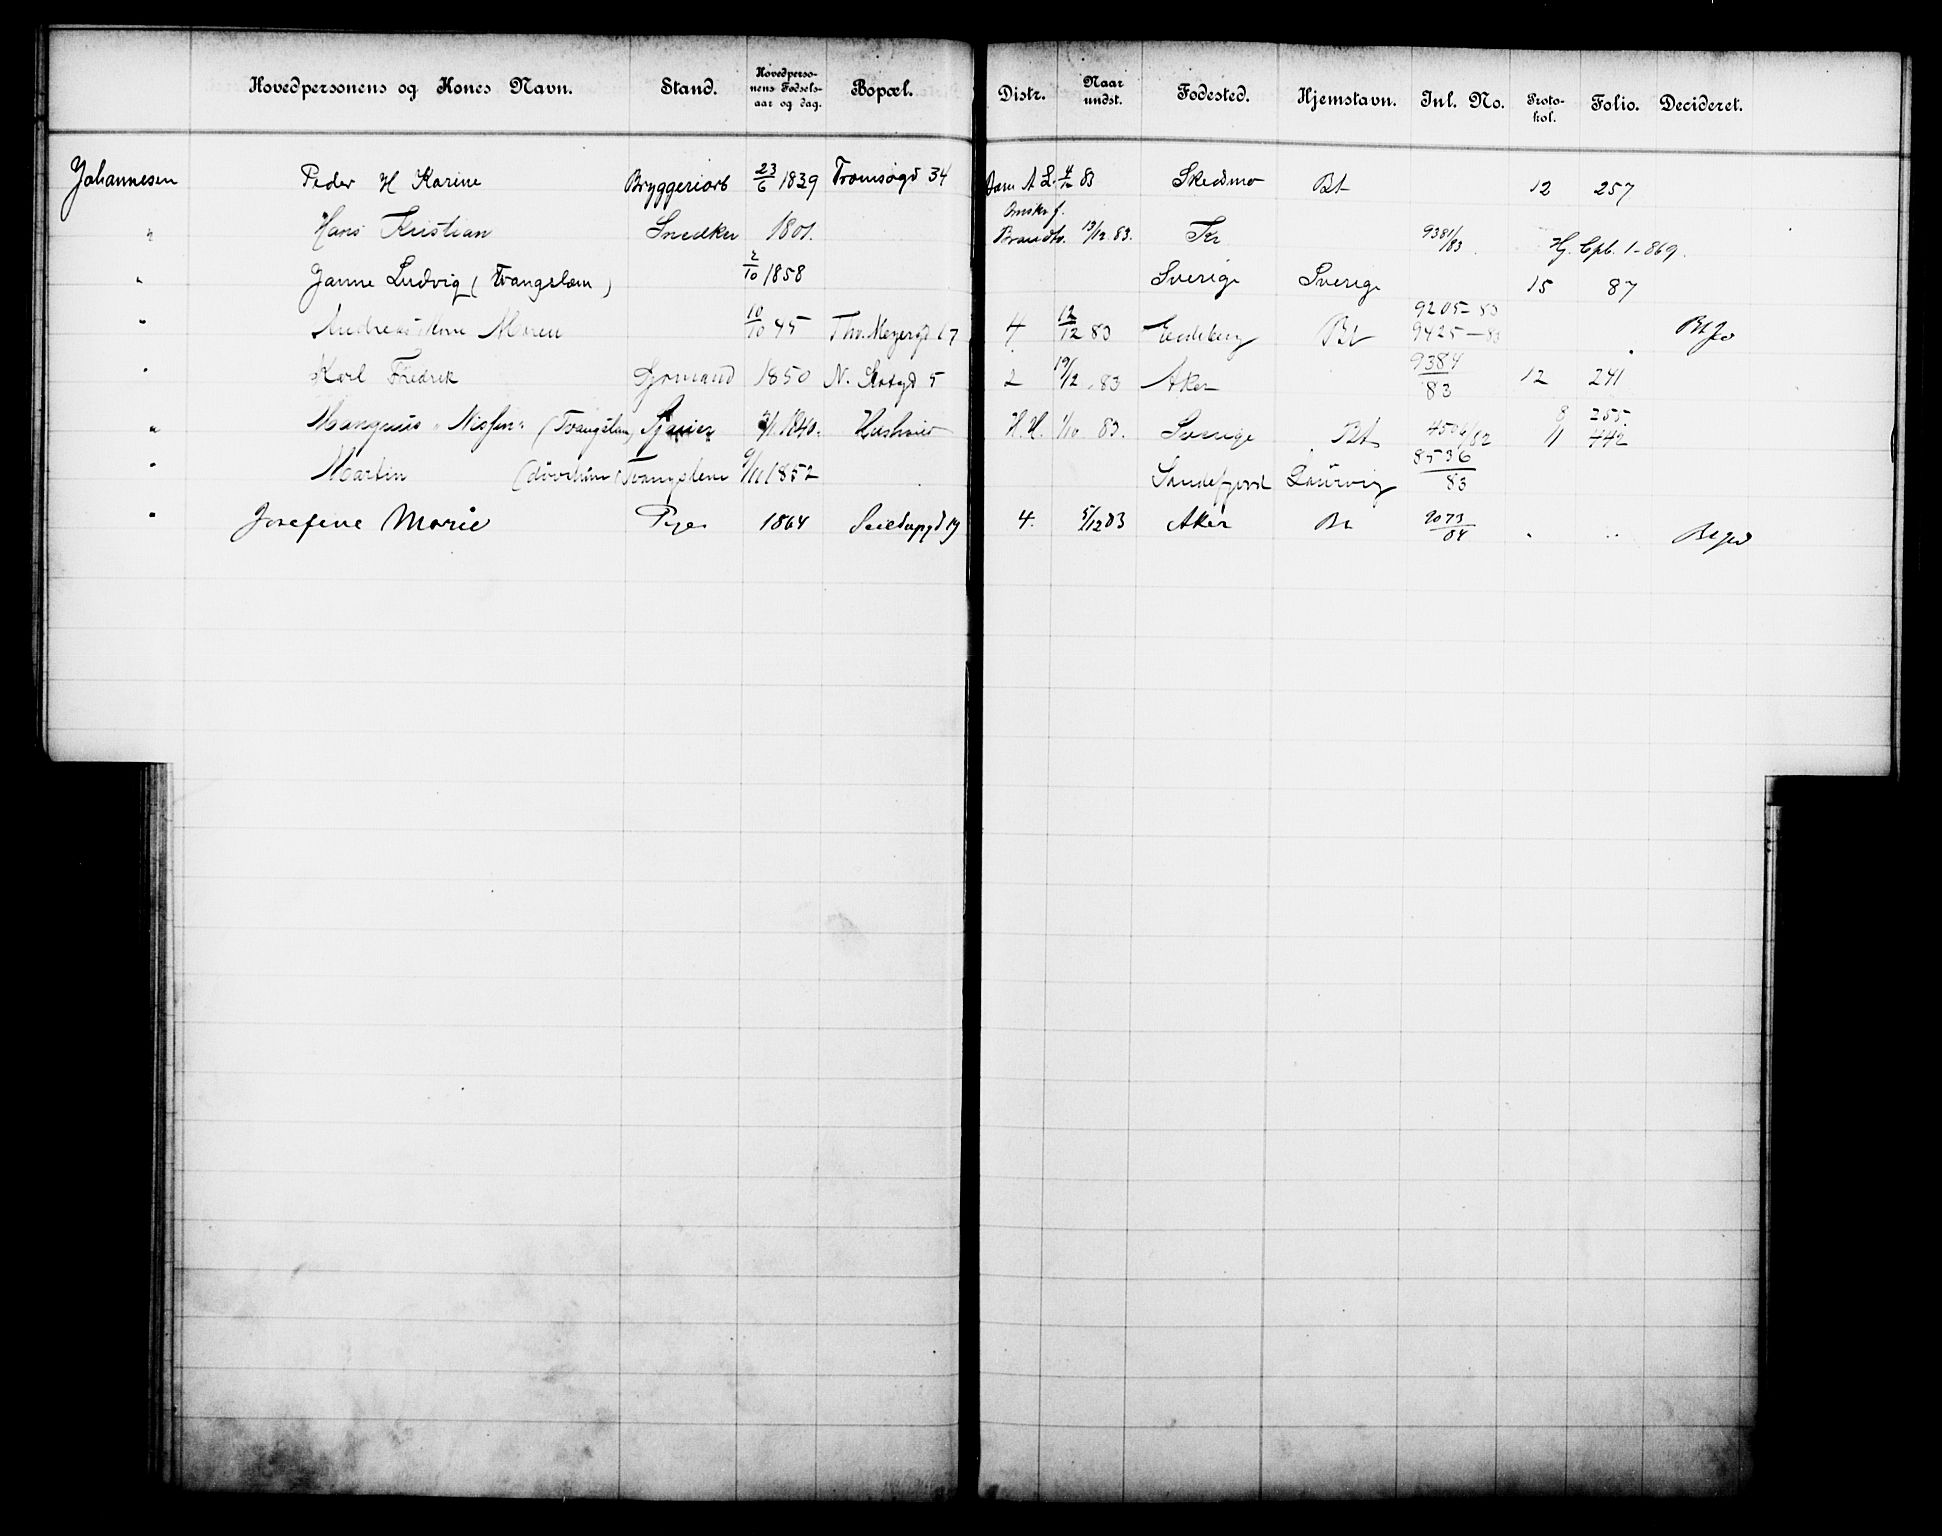 Hovedpersonens og Kones Navn. Stand. Hovedperso-nens Fødsels-aar og dag. Bopæl. Distr. Naar undst. Fødested. Hjemstavn. Inl. No. Proto-kol. Folio. Decideret.
Johannesen Peder H Karine Bryggeriarb 23/6 1839 Tromsøgd 34 A L. 83 Skedsmo Bt 12 257
" Hans Kristian Snedker 1801. Brandtv. 13/12 83. Kr 9381/83 Hj. Cpb. 1-869.
" Janne Ludvig (Tvangslem) 2/10 1858 Sverige Sverige 15 87
" Andreas Maren 10/10 45 Thv. Meyersgd 67 4 12/12 83 Bt 9205-83 9425-83
" Karl Fredrik Sjømand 1850 N. Slotsgd 5 2 19/12 83 Aker 9384/83 12 241
" Mangnus "Nissen" (Tvangslem) 1840. H.H. 1/10 83. Sverige Bt 4506/82 8 255. 11 442
" Martin (døvstum) Tvangslem 1852 Sandefjord Laurvig 8536/83
" Josefine Marie Pige 1864 4. 5/12 83 Aker Bt 9073/84